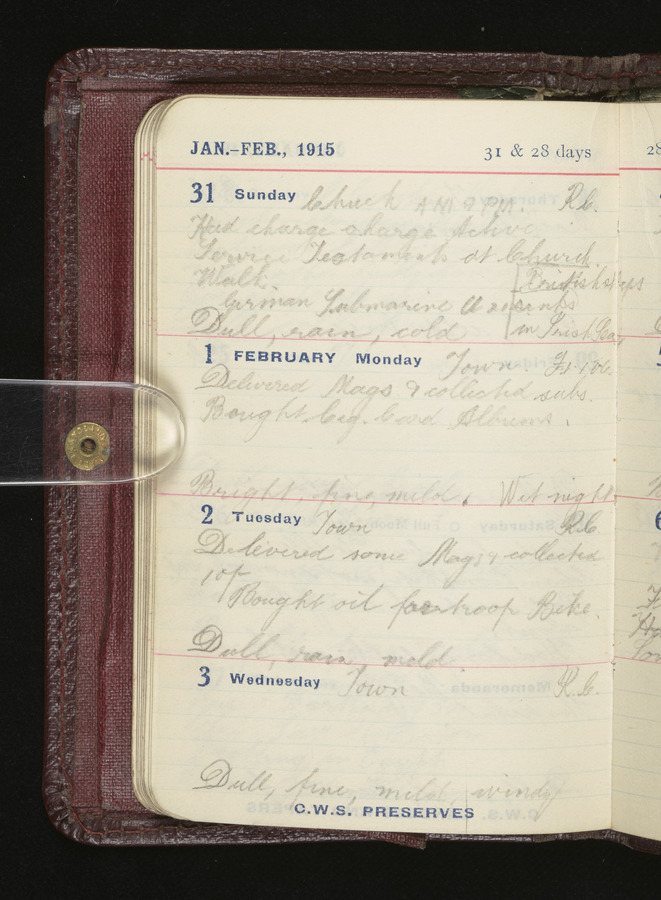 JAN.–FEB., 1915 31 & 28 days
31 Sunday Chuch A.M. & P.M. R.C.
Had charge Active
Service Testaments at Church.
Walk. British ships
German Submarine
Dull, rain, cold in Irish
1 FEBRUARY Monday Town
Delivered Mags & collected subs.
Bought Cig. Card Albums.
Bright, fine, mild. Wet night
2 Tuesday Town R.C.
Delivered some Mags & collected
10/-
Bought oil for troop Bike.
Dull, rain, mild
3 Wednesday Town R.C.
Dull, fine, mild, windy
C.W.S. PRESERVES
28
6